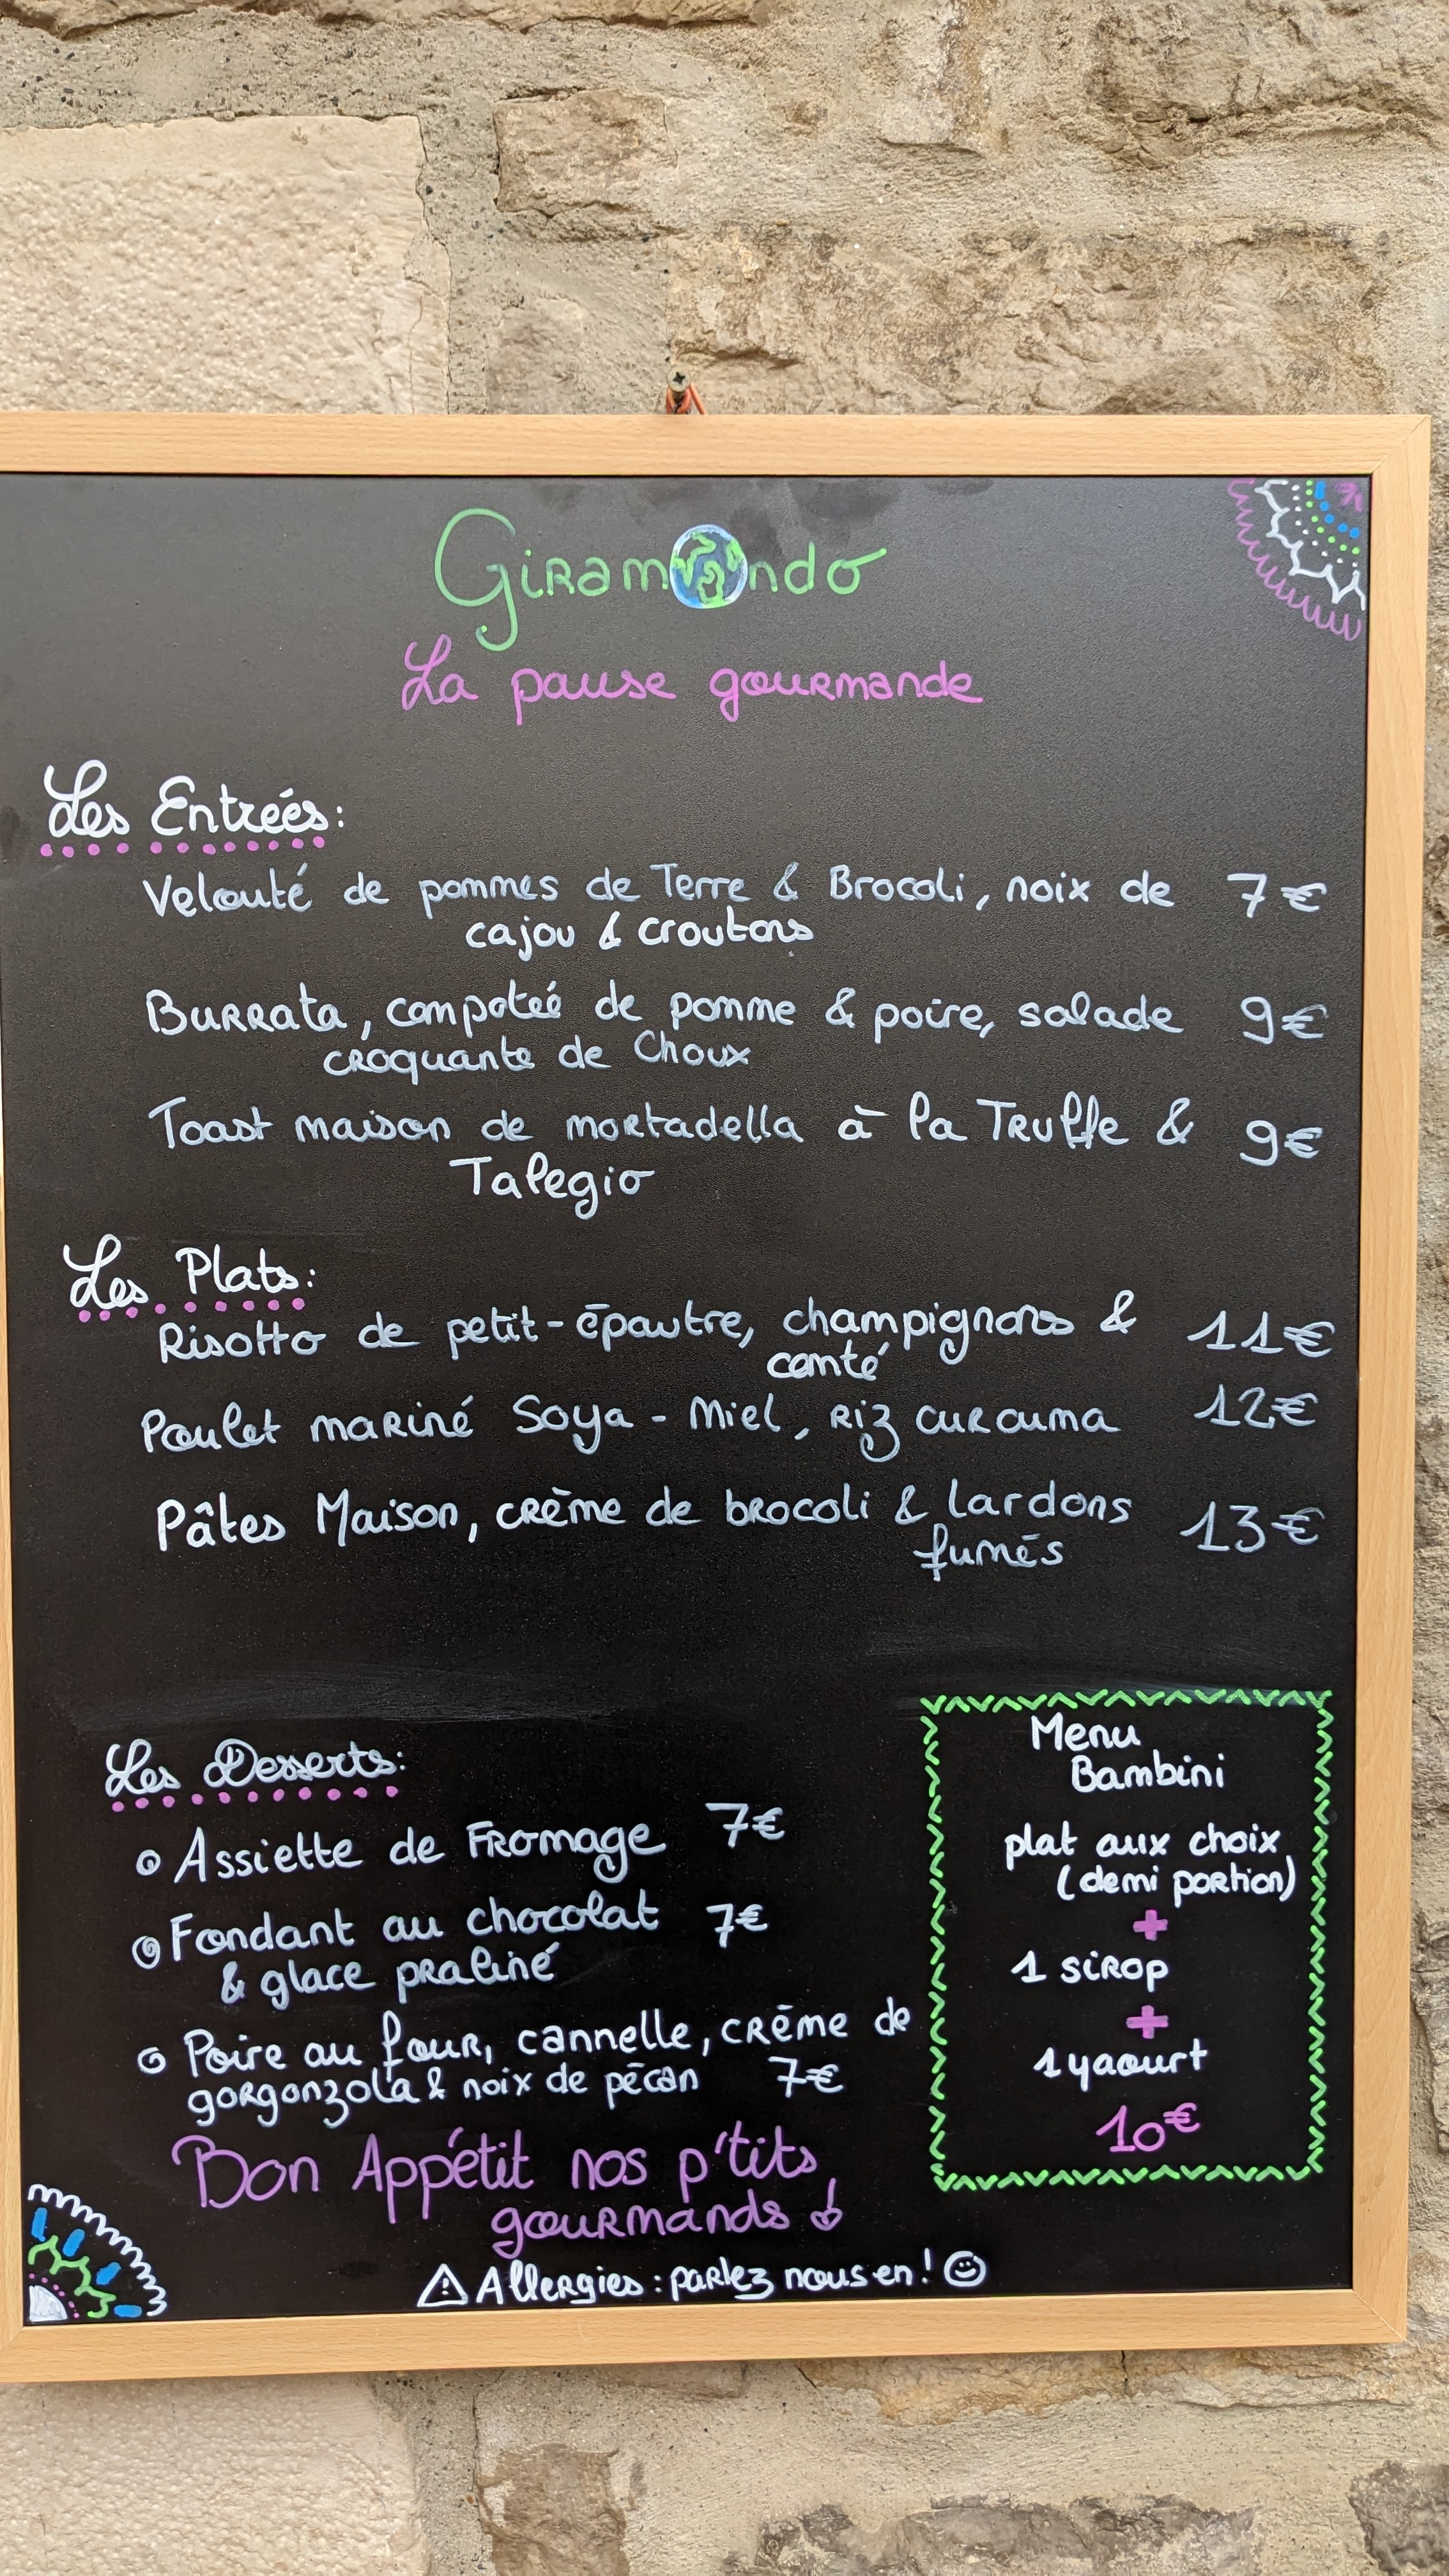 Giramondo
La pause gourmande
Les Entrées:
Velouté de pommes de Terre & Brocoli, noix de 7€
cajou & croutons
Burrata, compoteé de pomme & poire, salade 9€
croquante de Choux
Toast maison de mortadella à la Truffe & 9€
Talegio
Les Plats:
Risotto de petit-épautre, champignons & 11€
comté
Poulet mariné Soya - Miel, riz curcuma 12€
Pâtes Maison, crème de brocoli & lardons 13€
fumés
Les Desserts:
Assiette de Fromage 7€
Fondant au chocolat 7€
& glace praliné
Poire au four, cannelle, crème de
gorgonzola & noix de pécan 7€
Menu
Bambini
plat aux choix
(demi portion)
+
1 sirop
+
1 yaourt
10€
Bon Appétit nos p'tits
gourmands
⚠ Allergies : parlez nous en ! ☺